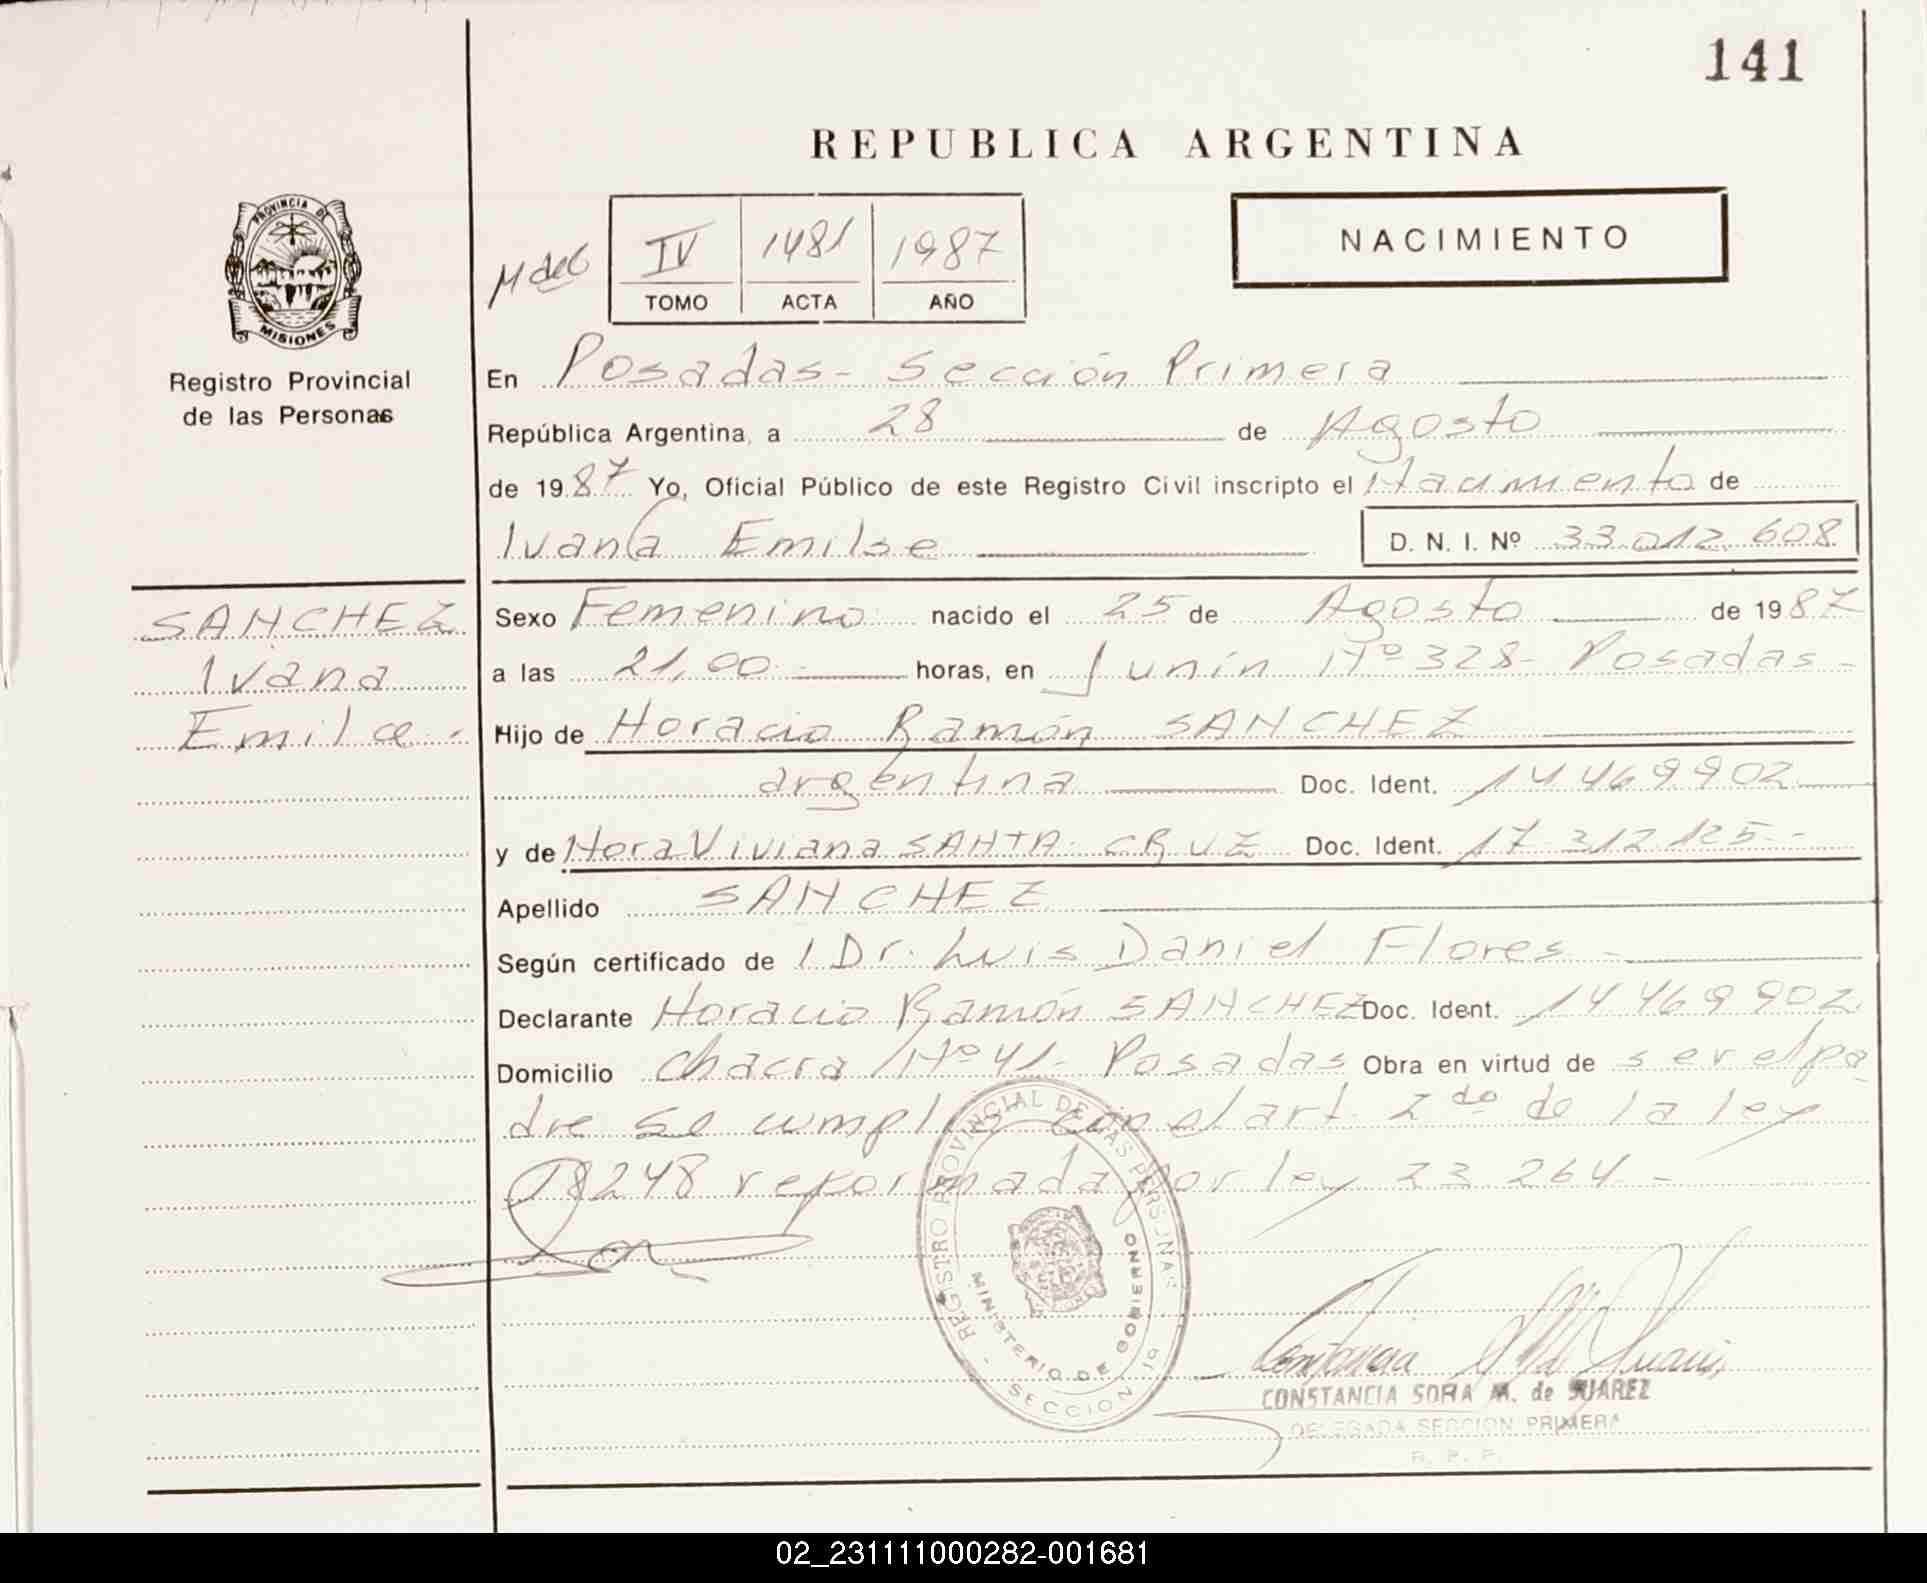 141
REPUBLICA ARGENTINA
PROVINCIA DE
MISIONES
Registro Provincial
de las Personas
M del
IV 1481 1987
TOMO ACTA AÑO
NACIMIENTO
En Posadas - Sección Primera
República Argentina, a 28 de Agosto
de 1987 Yo, Oficial Público de este Registro Civil inscripto el Nacimiento de
Ivana Emilse
D. N. I. Nº 33.012.608
SANCHEZ
Ivana
Emilce.-
Sexo Femenino nacido el 25 de Agosto de 1987
a las 21,00 - horas, en Junín Nº 328 - Posadas -
Hijo de Horacio Ramón SANCHEZ
argentina Doc. Ident. 14469902
y de Nora Viviana SANTA CRUZ Doc. Ident. 17.312.125 -
Apellido SANCHEZ
Según certificado de l Dr. Luis Daniel Flores -
Declarante Horacio Ramón SANCHEZ Doc. Ident. 14469902
Domicilio Chacra Nº 41 - Posadas Obra en virtud de ser el pa
dre se cumple con el art. 2do de la ley
18248 reformada por ley 23.264 -
REGISTRO PROVINCIAL DE LAS PERSONAS
MINISTERIO DE GOBIERNO
- SECCION 1ª
CONSTANCIA SOFIA M. de SUAREZ
DELEGADA SECCION PRIMERA
R. P. P.
02_231111000282-001681